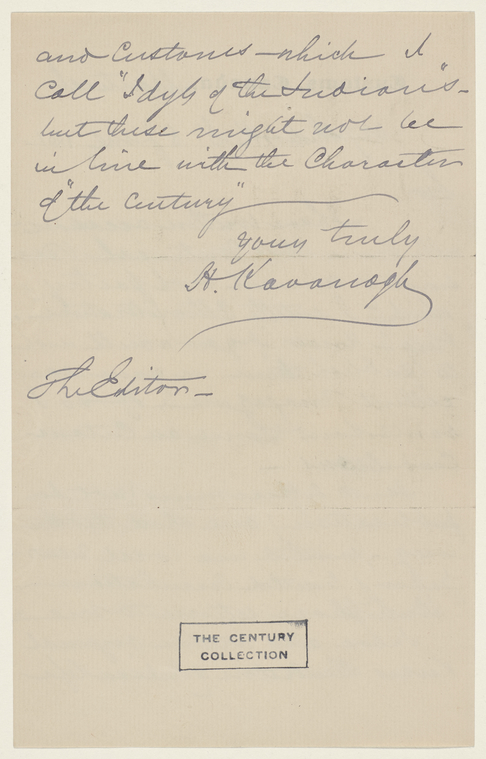 and Customs - which I
Call "Idyls of the Indians" -
but these might not be
in line with the Character
of "the Century"
yours truly
H. Kavanagh
The Editor -
THE CENTURY
COLLECTION